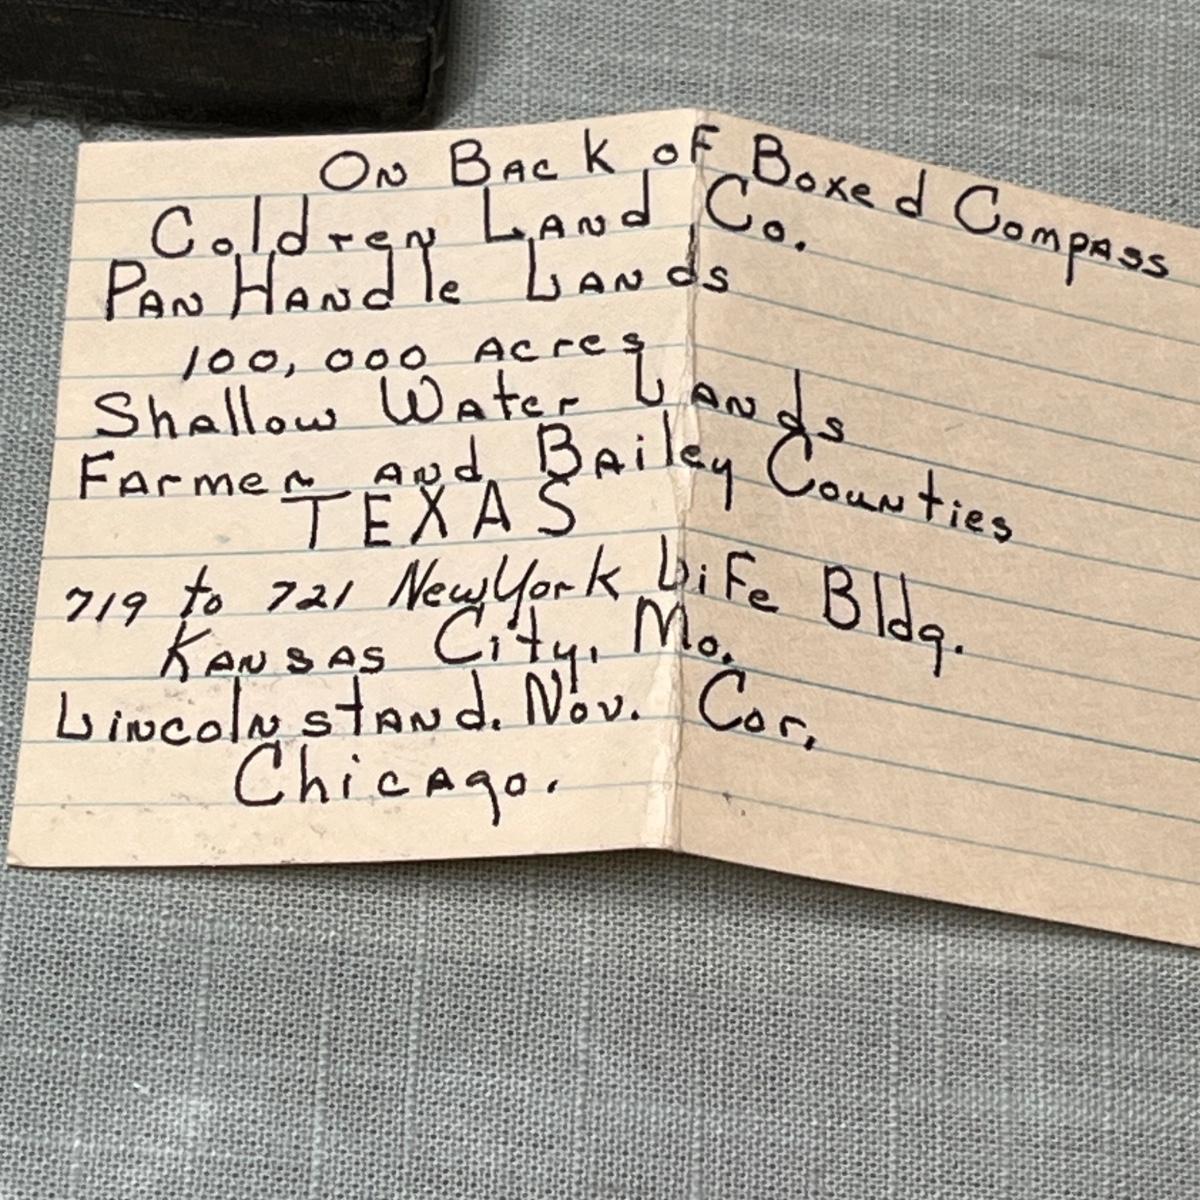 On Back of Boxed Compass
Coldren Land Co.
Pan Handle Lands
100,000 Acres
Shallow Water Lands
Farmen and Bailey Counties
TEXAS
719 to 721 New York Life Bldg.
Kansas City, Mo.
Lincoln stand. Nov. Cor,
Chicago.